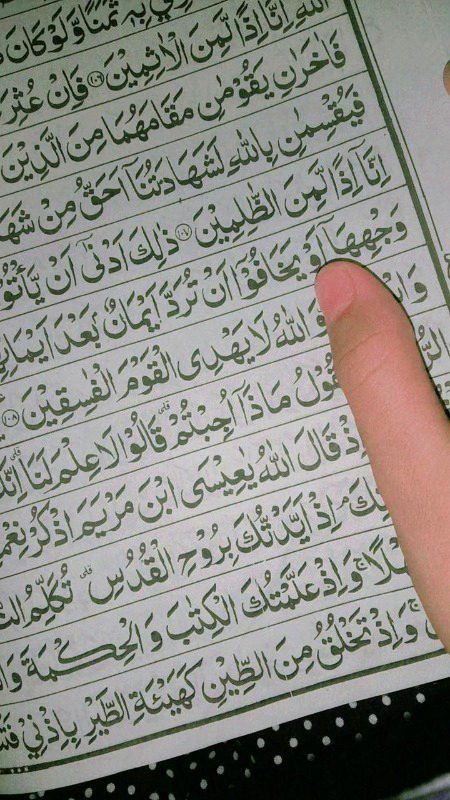 بِهٖ ثَمَنًا وَّلَوْ كَانَ
اللّٰهِ اِنَّاۤ اِذًا لَّمِنَ الْاٰثِمِيْنَ ﴿١٠٦﴾ فَاِنْ عُثِرَ
فَاٰخَرٰنِ يَقُوْمٰنِ مَقَامَهُمَا مِنَ الَّذِيْنَ
فَيُقْسِمٰنِ بِاللّٰهِ لَشَهَادَتُنَاۤ اَحَقُّ مِنْ شَهَا
اِنَّاۤ اِذًا لَّمِنَ الظّٰلِمِيْنَ ﴿١٠٧﴾ ذٰلِكَ اَدْنٰۤى اَنْ يَّاْتُوْ
وَجْهِهَاۤ اَوْ يَخَافُوْۤا اَنْ تُرَدَّ اَيْمَانٌۢ بَعْدَ اَيْمَانِ
اللّٰهُ لَا يَهْدِى الْقَوْمَ الْفٰسِقِيْنَ ﴿١٠٨﴾
مَاذَاۤ اُجِبْتُمْ ؕ قَالُوْا لَا عِلْمَ لَنَا ؕ اِنَّكَ
اِذْ قَالَ اللّٰهُ يٰعِيْسَى ابْنَ مَرْيَمَ اذْكُرْ نِعْمَ
اِذْ اَيَّدْتُّكَ بِرُوْحِ الْقُدُسِ تُكَلِّمُ
وَاِذْ عَلَّمْتُكَ الْكِتٰبَ وَالْحِكْمَةَ
وَاِذْ تَخْلُقُ مِنَ الطِّيْنِ كَهَيْئَةِ الطَّيْرِ بِاِذْنِيْ